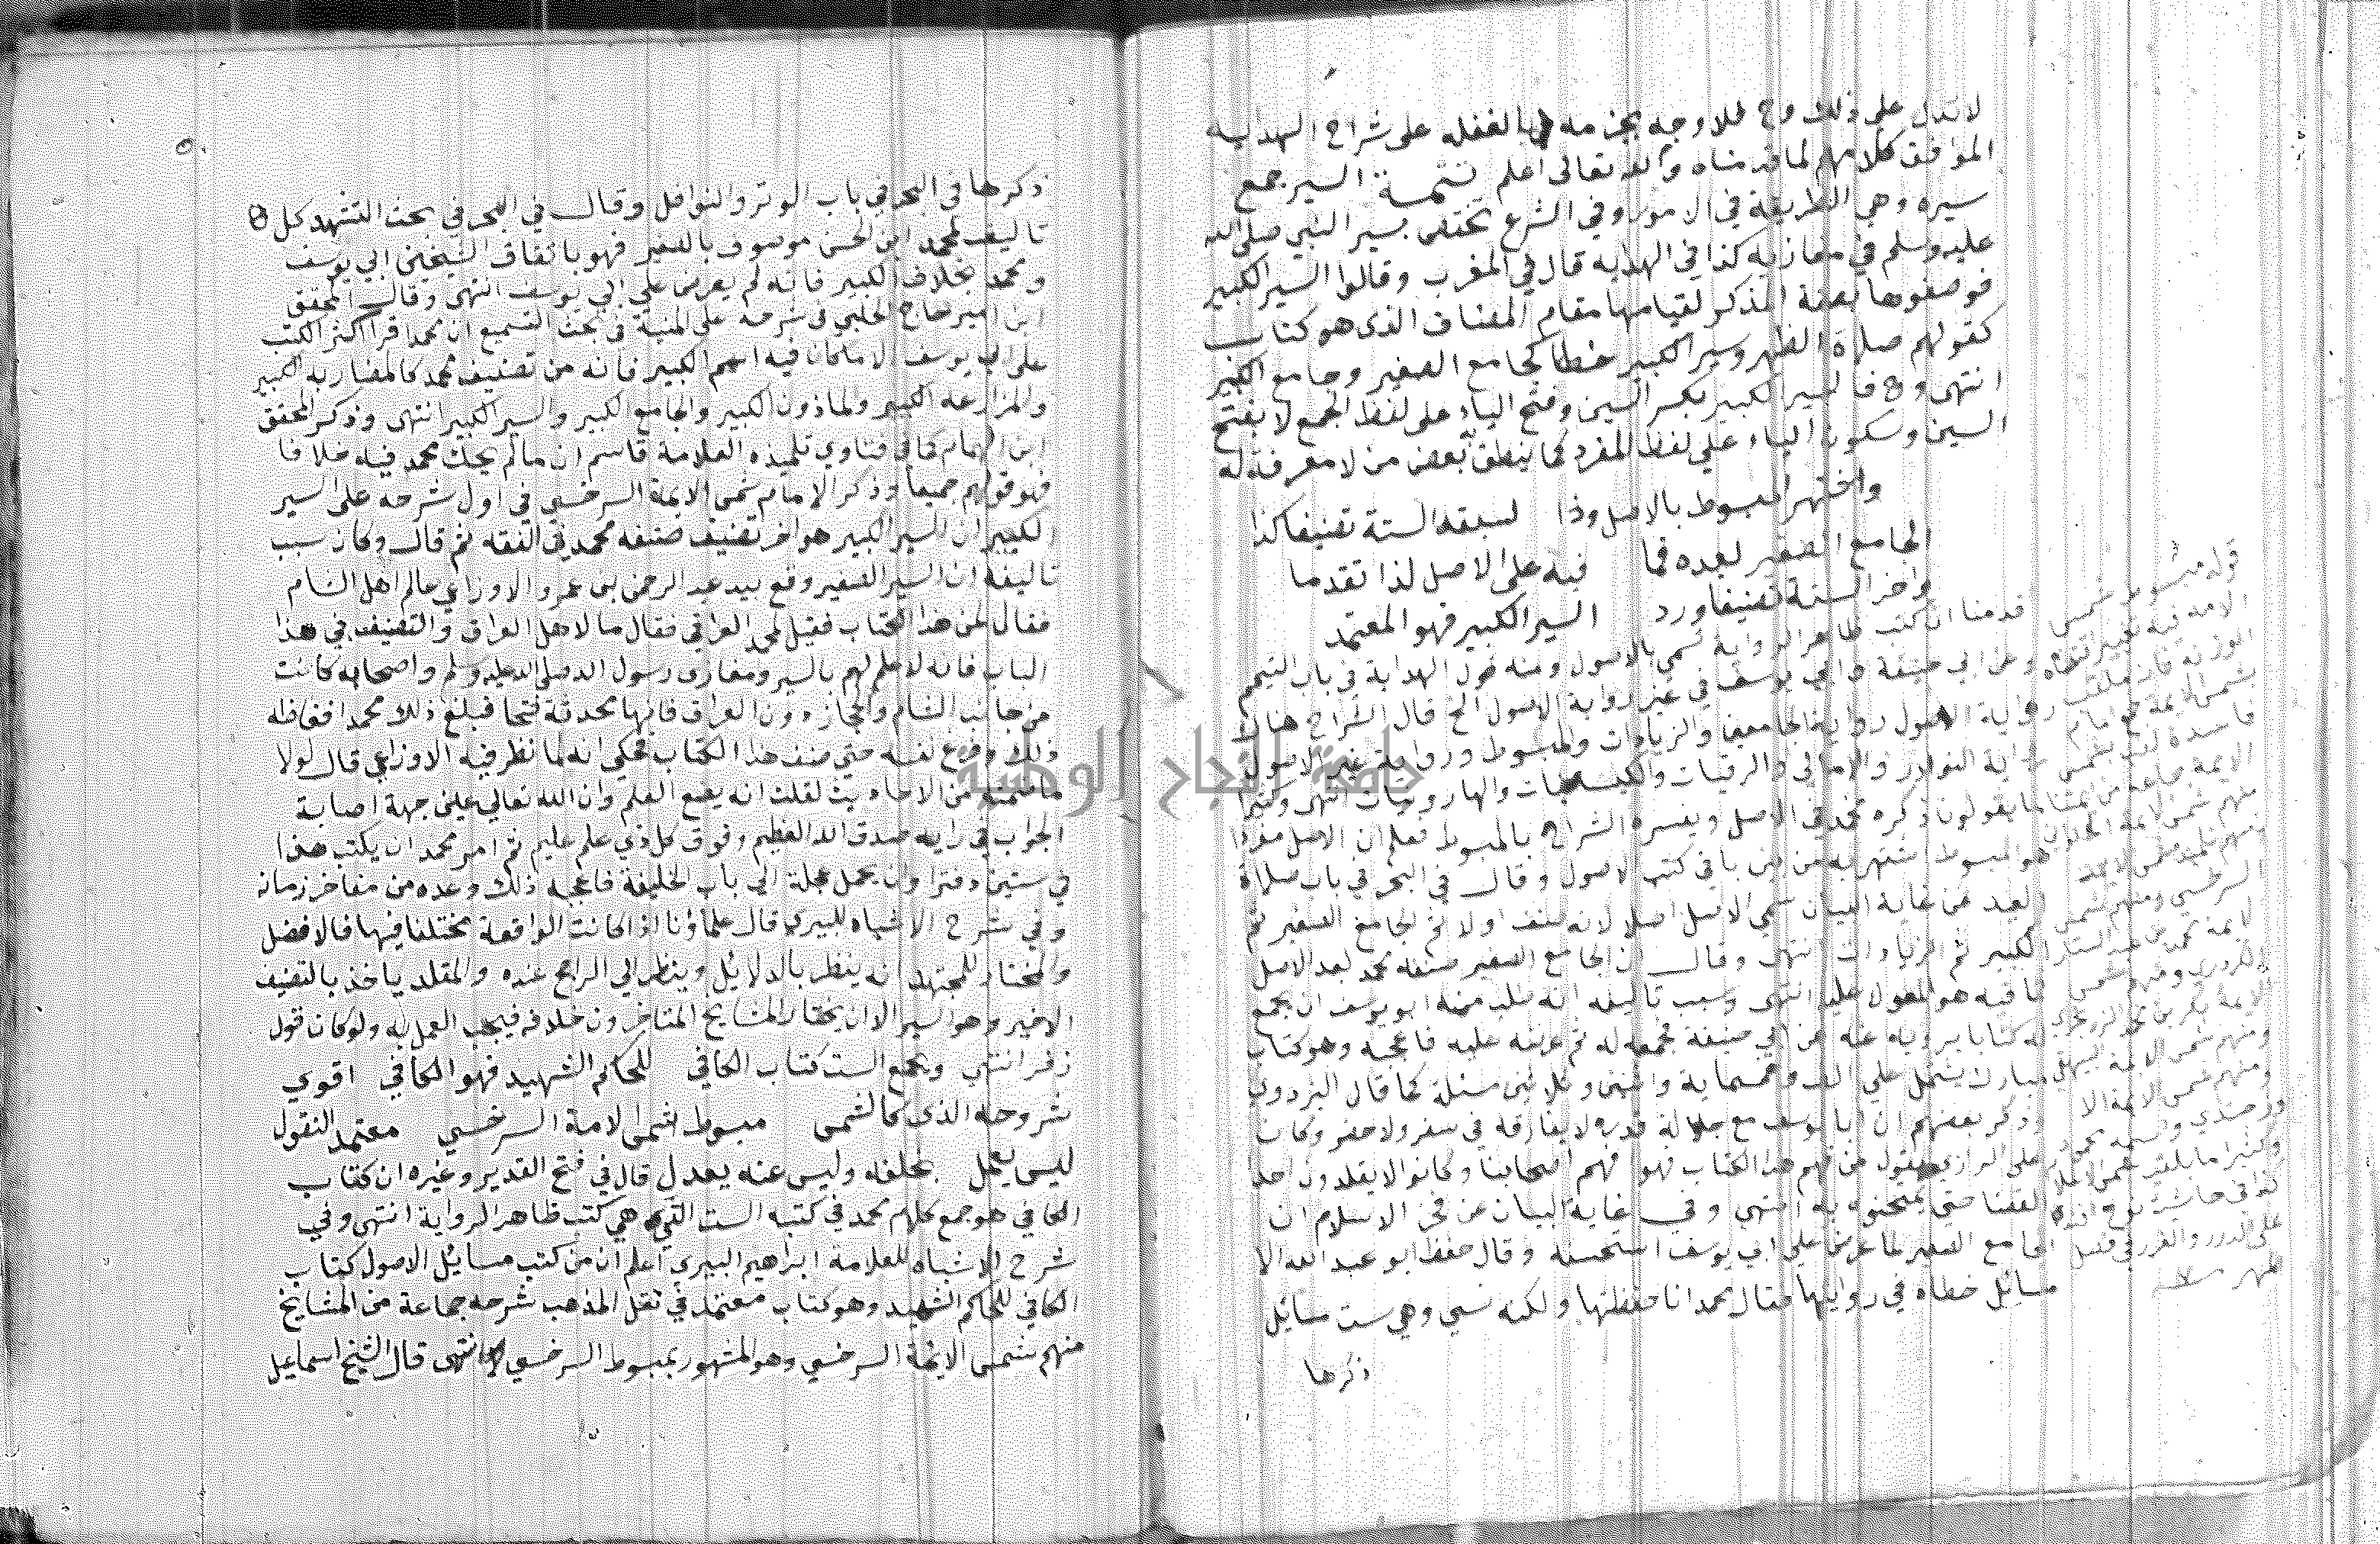 لا تدل على ذلك وح فلا وجه بجزمه بالغفله على شراح الهدايه
الموافق كلامهم لما قدمناه والله تعالى اعلم تتمة السير جمع
سيره وهي الطريقة في الامور وفي الشرع تختص بسير النبي صلى الله
عليه وسلم في مغازيه كذا في الهدايه قال في المغرب وقالوا السير الكبير
فوصفوها بصفة المذكر لقيامها مقام المضاف الذى هو كتاب
كقولهم صلاة الظهر وسير الكبير خطا كجامع الصغير وجامع الكبير
انتهى وح فالسير الكبير بكسر السين وفتح الياء على لفظ الجمع لا بفتح
السين وسكون الياء على لفظ المفرد كما ينطق به بعض من لا معرفة له
واشتهر المبسوط بالاصل وذا لسبقه الستة تصنيفا كذا
الجامع الصغير بعده فما فيه على الاصل لذا تقدما
واخر الستة تصنيفا ورد السير الكبير فهو المعتمد
قدمنا ان كتب ظاهر الرواية تسمى بالاصول ومنه قول الهداية في باب التيمم
وعن ابي حنيفة وابي يوسف في غير رواية الاصول الخ قال الشراح هناك
رواية الاصول رواية الجامعين والزيادات والمبسوط ورواية غير الاصول
رواية النوادر والامالي والرقيات والكيسانيات والهارونيات انتهى وكثيرا
ما يقولون ذكره محمد في الاصل ويفسره الشراح بالمبسوط فعلم ان الاصل مفردا
هو المبسوط اشتهر به من بين باقي كتب الاصول وقال في البحر في باب صلاة
العيد عن غاية البيان سمي الاصل اصلا لانه صنف اولا ثم الجامع الصغير ثم
الكبير ثم الزيادات انتهى وقال ان الجامع الصغير صنفه محمد بعد الاصل
فما فيه هو المعول عليه انتهى وسبب تاليفه انه طلب منه ابو يوسف ان يجمع
له كتابا يرويه عنه عن ابي حنيفة فجمعه له ثم عرضه عليه فاعجبه وهو كتاب
مبارك يشتمل على الف وخمسماية واثنين وثلاثين مسئلة كما قال البزدوي
وذكر بعضهم ان ابا يوسف مع جلالة قدره لا يفارقه في سفر ولا حضر وكان
على الرازي يقول من فهم هذا الكتاب فهو افهم اصحابنا وكانوا لا يقلدون احدا
القضا حتى يمتحنوه به انتهى وفي غاية البيان عن فخر الاسلام ان
الجامع الصغير لما عرض على ابي يوسف استحسنه وقال حفظ ابو عبد الله الا
مسائل خطاه في روايتها فقال محمد انا حفظتها ولكنه نسي وهي ست مسائل
ذكرها
قوله مبسوط شمس
الايمة فيه تغيير اقتضاه
الوزن فانه ملقب
بشمس الايمة
الايمة جماعة من ائمتنا
منهم شمس الايمة الحلواني
ومنهم تلميذه شمس الايمة
السرخسي ومنهم شمس
الايمة محمد بن عبد الستار
الكردري ومنهم شمس
الايمة بكر بن محمد الزرنجري
ومنهم شمس الايمة البيهقي
ومنهم شمس الايمة الا
وزجندي واسمه محمود
وكثيرا ما يلقب شمس الاسلام
كذا في حاشية نوح افندي
على الدرر والغرر في فصل
المهر
٥.
ذكرها في البحر في باب الوتر والنوافل وقال في البحر في بحث التشهد كل
تاليف لمحمد ابن الحسن موصوف بالصغير فهو باتفاق الشيخين ابي يوسف
ومحمد بخلاف الكبير فانه لم يعرض على ابي يوسف انتهى وقال المحقق
ابن امير حاج الحلبي في شرحه على المنية في بحث التسميع ان محمدا قرا اكثر الكتب
على ابي يوسف الا ما كان فيه اسم الكبير فانه من تصنيف محمد كالمضاربه الكبير
والمزارعه الكبير والماذون الكبير والجامع الكبير والسير الكبير انتهى وذكر المحقق
ابن الهمام كما في فتاوي تلميذه العلامة قاسم ان ما لم يحك محمد فيه خلافا
فهو قولهم جميعا وذكر الامام شمس الايمة السرخسي في اول شرحه على السير
الكبير ان السير الكبير هو اخر تصنيف صنفه محمد في الفقه ثم قال وكان سبب
تاليفه ان السير الصغير وقع بيد عبد الرحمن بن عمرو الاوزاعي عالم اهل الشام
فقال لمن هذا الكتاب فقيل لمحمد العراقي فقال ما لاهل العراق والتصنيف في هذا
الباب فانه لا علم لهم بالسير ومغازى رسول الله صلى الله عليه وسلم واصحابه كانت
من جانب الشام والحجاز دون العراق فانها محدثة فتحا فبلغ ذلك محمدا فغاظه
ذلك وفرغ نفسه حتى صنف هذا الكتاب فحكي انه لما نظر فيه الاوزاعي قال لولا
ما ضمنه من الاحاديث لقلت انه يضع العلم وان الله تعالى عين جهة اصابة
الجواب في رايه صدق الله العظيم وفوق كل ذي علم عليم ثم امر محمد ان يكتب هذا
في ستين دفترا وان يحمل عجلة الى باب الخليفة فاعجبه ذلك وعده من مفاخر زمانه
وفي شرح الاشباه للبيري قال علماؤنا اذا كانت الواقعة مختلفا فيها فالافضل
والمختار للمجتهد انه ينظر بالدلايل وينظر الى الراجح عنده والمقلد ياخذ بالتصنيف
الاخير وهو السير الا ان يختار المشايخ المتاخرون خلافه فيجب العمل به ولو كان قول
زفر انتهى ويجمع الست كتاب الكافي للحاكم الشهيد فهو الكافي اقوي
شروحه الذى كالشمس مبسوط شمس الامة السرخسي معتمد النقول
ليس يعمل بخلفه وليس عنه يعدل قال في فتح القدير وغيره ان كتاب
الكافي هو جمع كلام محمد في كتبه الست التي هي كتب ظاهر الرواية انتهى وفي
شرح الاشباه للعلامة ابراهيم البيري اعلم ان من كتب مسائل الاصول كتاب
الكافي للحاكم الشهيد وهو كتاب معتمد في نقل المذهب شرحه جماعة من المشايخ
منهم شمس الايمة السرخسي وهو المشهور بمبسوط السرخسي انتهى قال الشيخ اسماعيل
جامعة النجاح الوطنية